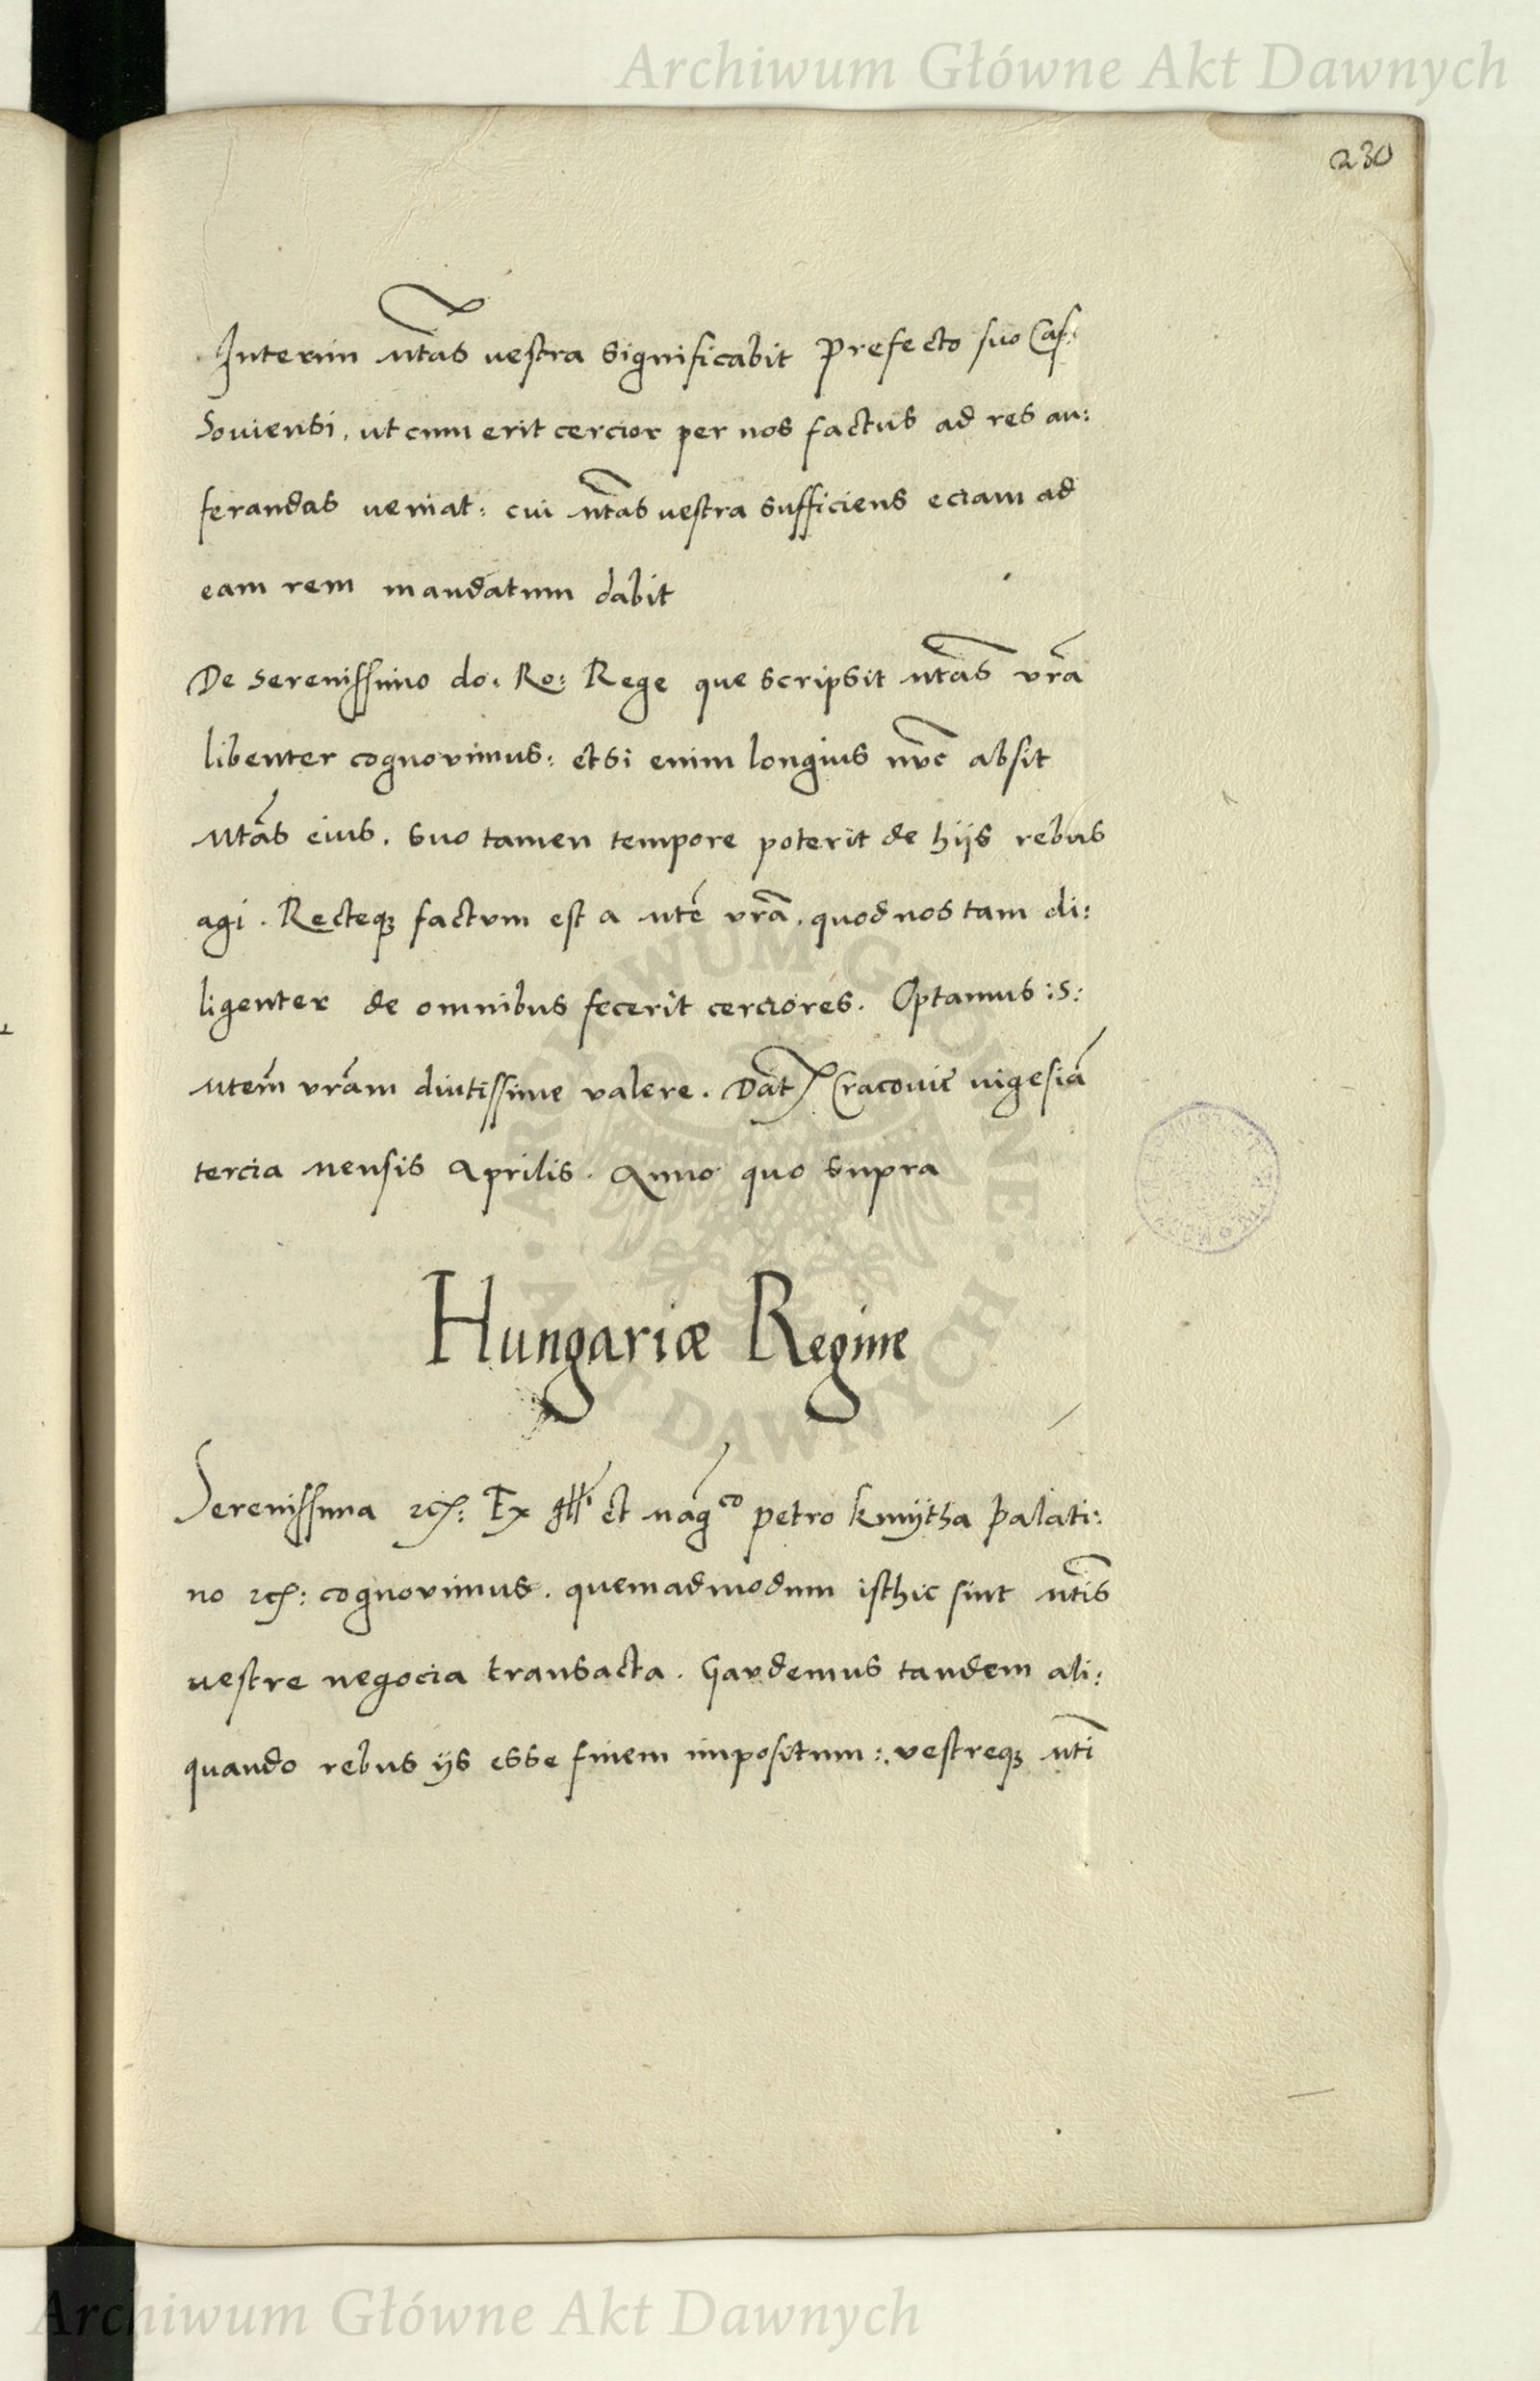 Archiwum Główne Akt Dawnych
230
Interim Mtas vestra significabit Prefecto suo Cas:
soviensi, ut cum erit cercior per nos factus ad res au:
ferandas veniat: cui Mtas vestra sufficiens eciam ad
eam rem mandatum dabit
De serenissimo do: Ro: Rege que scripsit Mtas vrã
libenter cognovimus: etsi enim longius nũc absit
Mtas eius, suo tamen tempore poterit de hijs rebus
agi. Recteq3 factum est a Mte vrã, quod nos tam di:
ligenter de omnibus fecerit cerciores. Optamus :S:
Mtem vram diutissime valere. Dat Cracovie vigesiã
tercia mensis Aprilis. Anno quo supra
Hungariæ Regine
Serenissima etc: Ex et magco petro kmijtha palati:
no etc: cognovimus, quemadmodum isthic sint Mtis
vestre negocia transacta. Gaudemus tandem ali:
quando rebus ijs esse finem impositum: vestreq3 Mti
ARCHIWUM GŁÓWNE · AKT DAWNYCH ·
Archiwum Główne Akt Dawnych